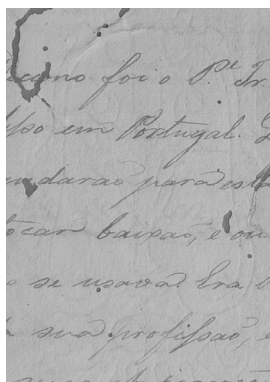 como foi o P.e Fr
em Portugal.
andarão para est
tocar baixão, e ou
se usava. Era
sua profissão, e